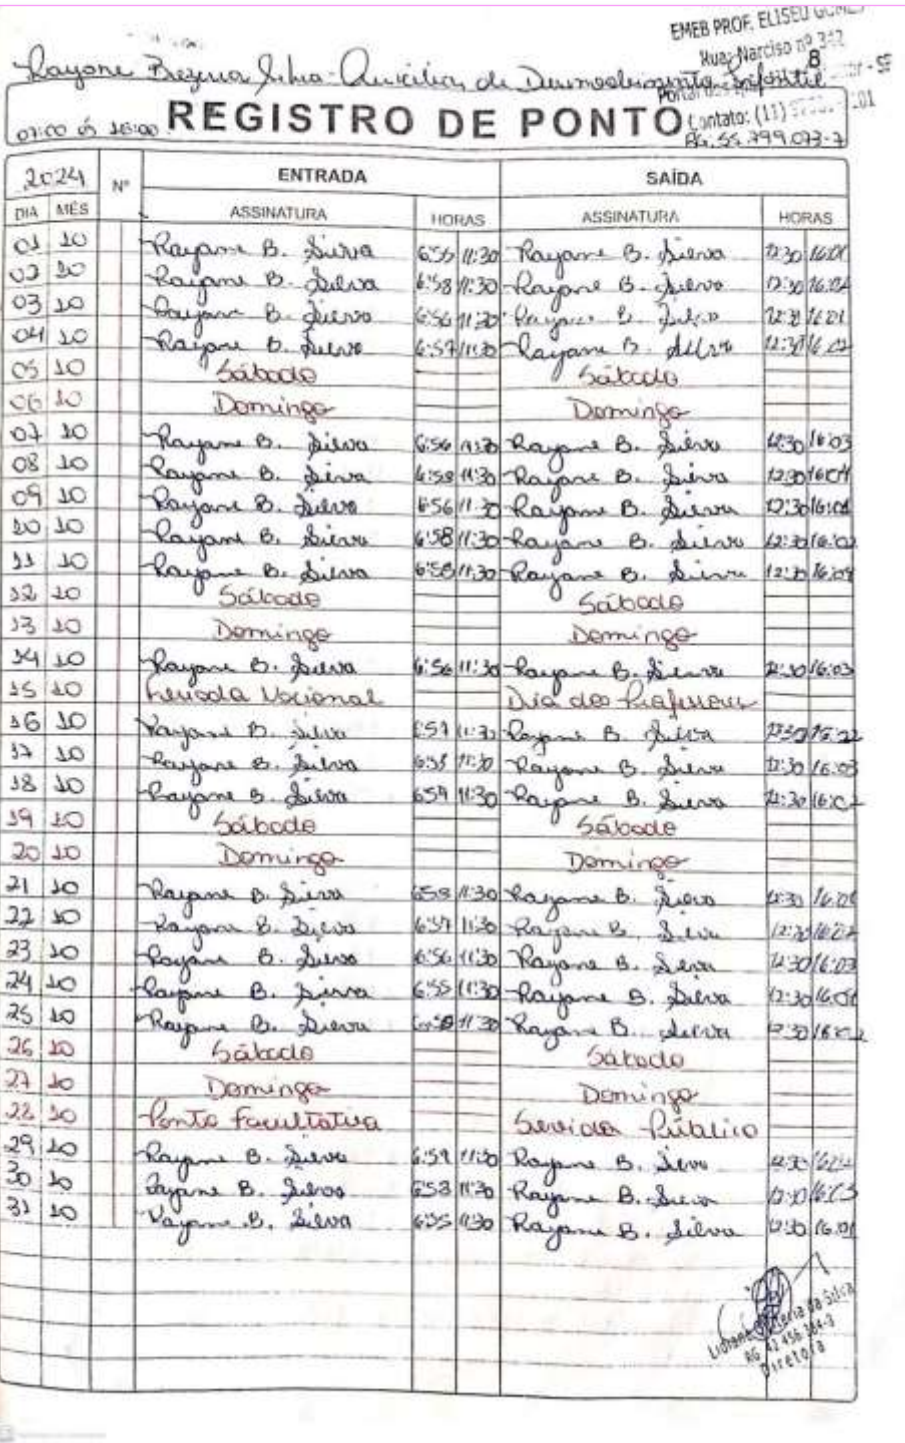 EMEB PROF. ELISEU GOMES
Rua: Narciso nº 342
8
Rayane Bezerra Silva - Auxiliar de Desenvolvimento Infantil
Contato: (11)
07:00 às 16:00 REGISTRO DE PONTO RG. 55.799.073-7
2024 Nº ENTRADA SAÍDA
DIA MÊS ASSINATURA HORAS ASSINATURA HORAS
01 10 Rayane B. Silva 6:55 11:30 Rayane B. Silva 12:30 16:01
02 10 Rayane B. Silva 6:58 11:30 Rayane B. Silva 12:30
03 10 Rayane B. Silva 6:56 11:30 Rayane B. Silva 12:30 16:01
04 10 Rayane B. Silva 6:57 11:30 Rayane B. Silva 12:30 16:02
05 10 Sábado Sábado
06 10 Domingo Domingo
07 10 Rayane B. Silva 6:56 11:30 Rayane B. Silva 12:30 16:03
08 10 Rayane B. Silva 6:58 11:30 Rayane B. Silva 12:30 16:04
09 10 Rayane B. Silva 6:56 11:30 Rayane B. Silva 12:30
10 10 Rayane B. Silva 6:58 11:30 Rayane B. Silva 12:30 16:02
11 10 Rayane B. Silva 6:58 11:30 Rayane B. Silva 12:30
12 10 Sábado Sábado
13 10 Domingo Domingo
14 10 Rayane B. Silva 6:56 11:30 Rayane B. Silva 12:30 16:03
15 10 Feriado Nacional Dia dos Professores
16 10 Rayane B. Silva 6:57 11:30 Rayane B. Silva 12:30
17 10 Rayane B. Silva 11:30 Rayane B. Silva 12:30 16:03
18 10 Rayane B. Silva 6:59 11:30 Rayane B. Silva 12:30 16:02
19 10 Sábado Sábado
20 10 Domingo Domingo
21 10 Rayane B. Silva 6:58 11:30 Rayane B. Silva 12:30
22 10 Rayane B. Silva 6:57 11:30 Rayane B. Silva 12:30 16:02
23 10 Rayane B. Silva 6:56 11:30 Rayane B. Silva 12:30 16:03
24 10 Rayane B. Silva 6:55 11:30 Rayane B. Silva 12:30 16:01
25 10 Rayane B. Silva 11:30 Rayane B. Silva 12:30 16:02
26 10 Sábado Sábado
27 10 Domingo Domingo
28 10 Ponto Facultativo Servidor Público
29 10 Rayane B. Silva 6:59 11:30 Rayane B. Silva 12:30
30 10 Rayane B. Silva 6:58 11:30 Rayane B. Silva 12:30 16:03
31 10 Rayane B. Silva 6:55 11:30 Rayane B. Silva 12:30 16:01
da Silva
Diretora